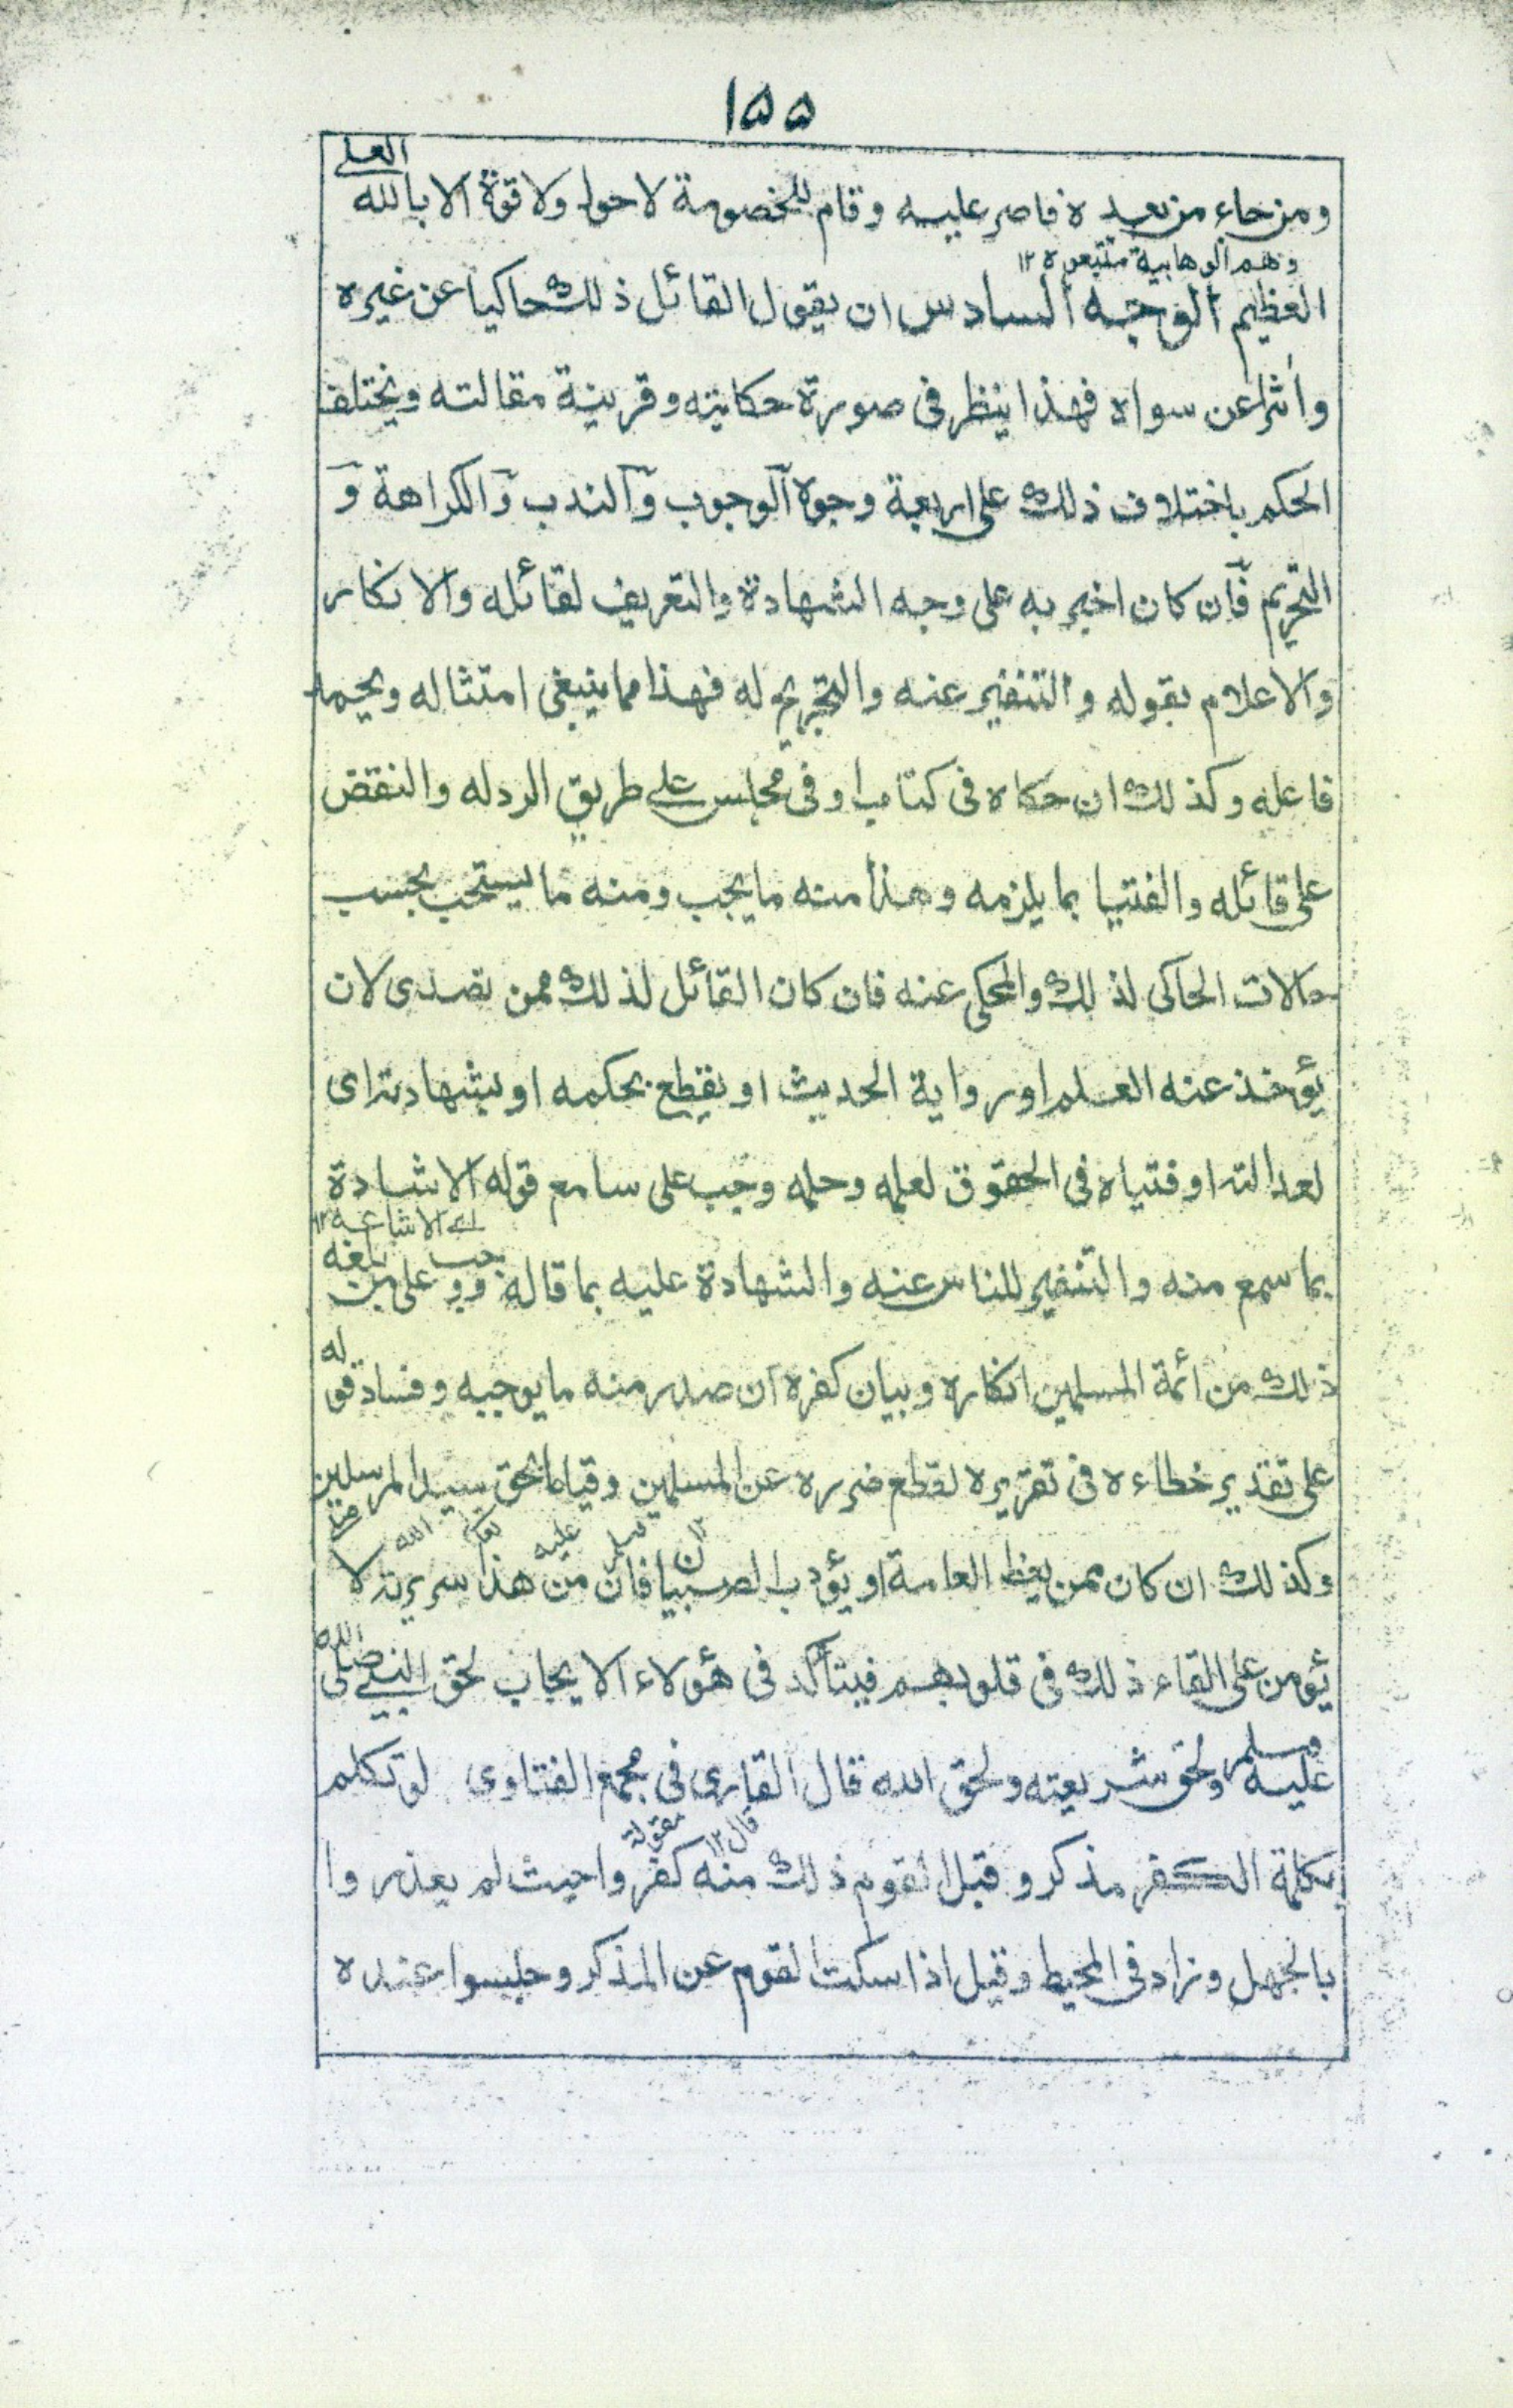 ١٥٥
ومن جاء من بعده فاصر عليه وقام للخصومة لا حول ولا قوة الا بالله العلى
وهم الوهابية متبعوه ١٢
العظيم الوجه السادس ان يقول القائل ذلك حاكيا عن غيره
واثرا عن سواه فهذا ينظر فى صورة حكايته وقرينة مقالته ويختلف
الحكم باختلاف ذلك على اربعة وجوه الوجوب والندب والكراهة و
التحريم فان كان اخبر به على وجه الشهادة والتعريف لقائله والانكار
والاعلام بقوله والتنفير عنه والتجريح له فهذا مما ينبغى امتثاله ويحمد
فاعله وكذلك ان حكاه فى كتاب او فى مجلس على طريق الرد له والنقض
على قائله والفتيا بما يلزمه وهذا منه ما يجب ومنه ما يستحب بحسب
حالات الحاكى لذلك والمحكى عنه فان كان القائل لذلك ممن تصدى لان
يؤخذ عنه العلم او رواية الحديث او يقطع بحكمه او بشهادته اى
لعدالته او فتياه فى الحقوق لعلمه وحلمه وجب على سامع قوله الاشادة
اے الاشاعة ١٢
بما سمع منه والتنفير للناس عنه والشهادة عليه بما قاله ووجب على من بلغه
ذلك من ائمة المسلمين انكاره وبيان كفره ان صدر منه ما يوجبه وفساد قوله
على تقدير خطاءه فى تقريره لقطع ضرره عن المسلمين وقياما بحق سيد المرسلين
وكذلك ان كان ممن يعظ العامة او يؤدب الصبيان فان من هذا سريرته لا
يؤمن على القاء ذلك فى قلوبهم فيتأكد فى هؤلاء الايجاب لحق النبى صلى الله
عليه وسلم ولحق شريعته ولحق الله قال القارى فى مجمع الفتاوى لو تكلم
بكلمة الكفر مذكر وقبل القوم ذلك منه كفروا حيث لم يعذروا
بالجهل وزاد فى المحيط وقيل اذا سكت القوم عن المذكر وجلسوا عنده